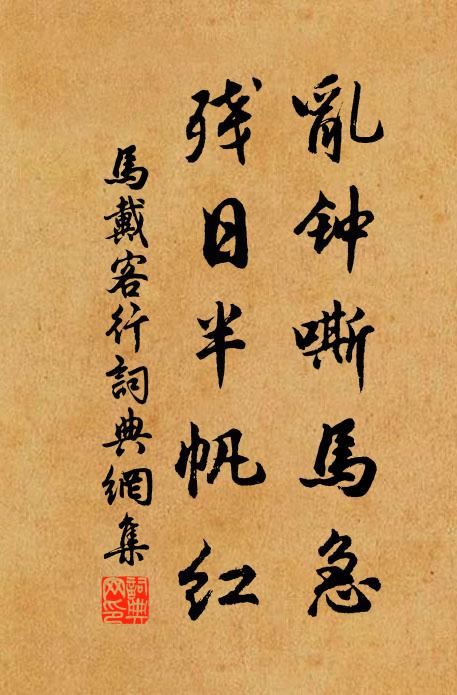 亂钟嘶馬急
残日半帆红
馬戴客行詞典網集
詞典网印